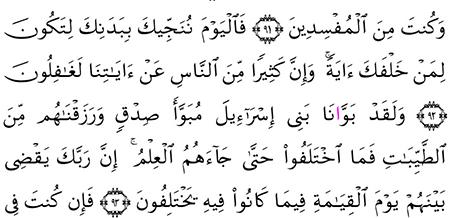 وَكُنتَ مِنَ ٱلْمُفْسِدِينَ ﴿٩١﴾ فَٱلْيَوْمَ نُنَجِّيكَ بِبَدَنِكَ لِتَكُونَ
لِمَنْ خَلْفَكَ ءَايَةًۭ ۚ وَإِنَّ كَثِيرًۭا مِّنَ ٱلنَّاسِ عَنْ ءَايَـٰتِنَا لَغَـٰفِلُونَ
﴿٩٢﴾ وَلَقَدْ بَوَّانَا بَنِىٓ إِسْرَٰٓءِيلَ مُبَوَّأَ صِدْقٍۢ وَرَزَقْنَـٰهُم مِّنَ
ٱلطَّيِّبَـٰتِ فَمَا ٱخْتَلَفُوا۟ حَتَّىٰ جَآءَهُمُ ٱلْعِلْمُ ۚ إِنَّ رَبَّكَ يَقْضِى
بَيْنَهُمْ يَوْمَ ٱلْقِيَـٰمَةِ فِيمَا كَانُوا۟ فِيهِ يَخْتَلِفُونَ ﴿٩٣﴾ فَإِن كُنتَ فِى